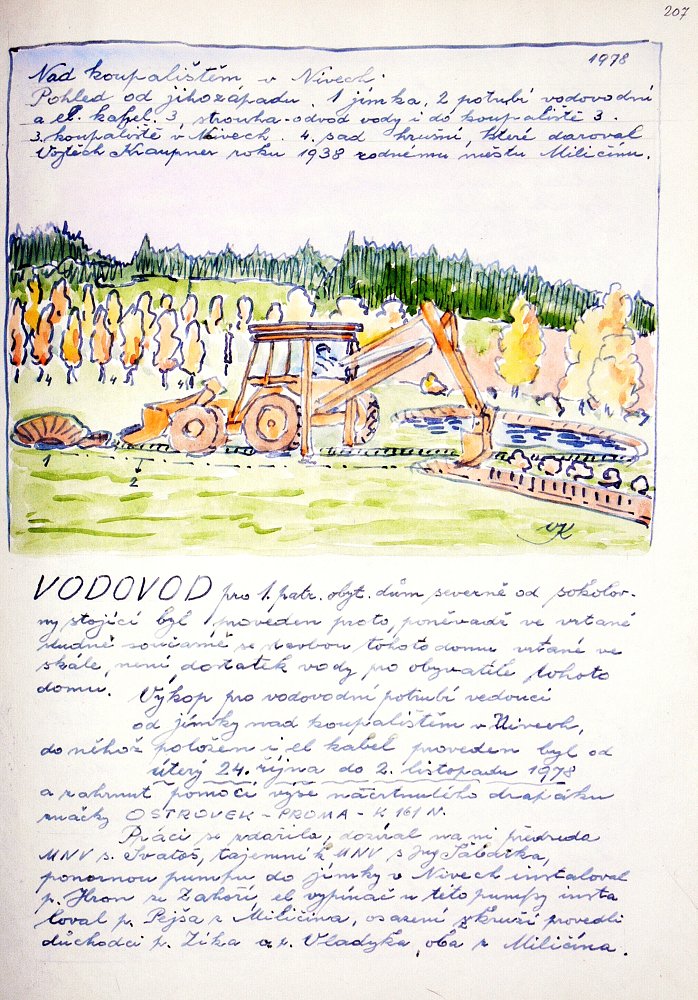 207
1978
Nad koupalištěm v Nivech.
Pohled od jihozápadu. 1 jímka, 2 potrubí vodovodní
a el. kabel. 3, strouha-odvod vody i do koupaliště 3.
3. koupaliště v Nivech. 4. sad hrušní, které daroval
Vojtěch Kraupner roku 1938 rodnému městu Miličínu.
4 4 4
1
2
VK
VODOVOD pro 1. patr. obyt. dům severně od sokolov-
ny stojící byl proveden proto, poněvadž ve vrtané
studně současně se stavbou tohoto domu vrtané ve
skále, není dostatek vody pro obyvatele tohoto
domu. Výkop pro vodovodní potrubí vedoucí
od jímky nad koupalištěm v Nivech,
do něhož položen i el. kabel proveden byl od
úterý 24. října do 2. listopadu 1978
a zahrnut pomocí výše načrtnutého drapáku
značky OSTROVEK - PROMA - K 161 N.
Práci se zdařila, dozíral na ni předseda
MNV s. Svatoš, tajemník MNV s Ing
ponornou pumpu do jímky v Nivech instaloval
p. Hron ze Zahoří, el vypínač u této pumpy insta
loval p. Pejša z Miličína, osazení skruží provedli
důchodci p. Zíka a p. Vladyka, oba z Miličína.